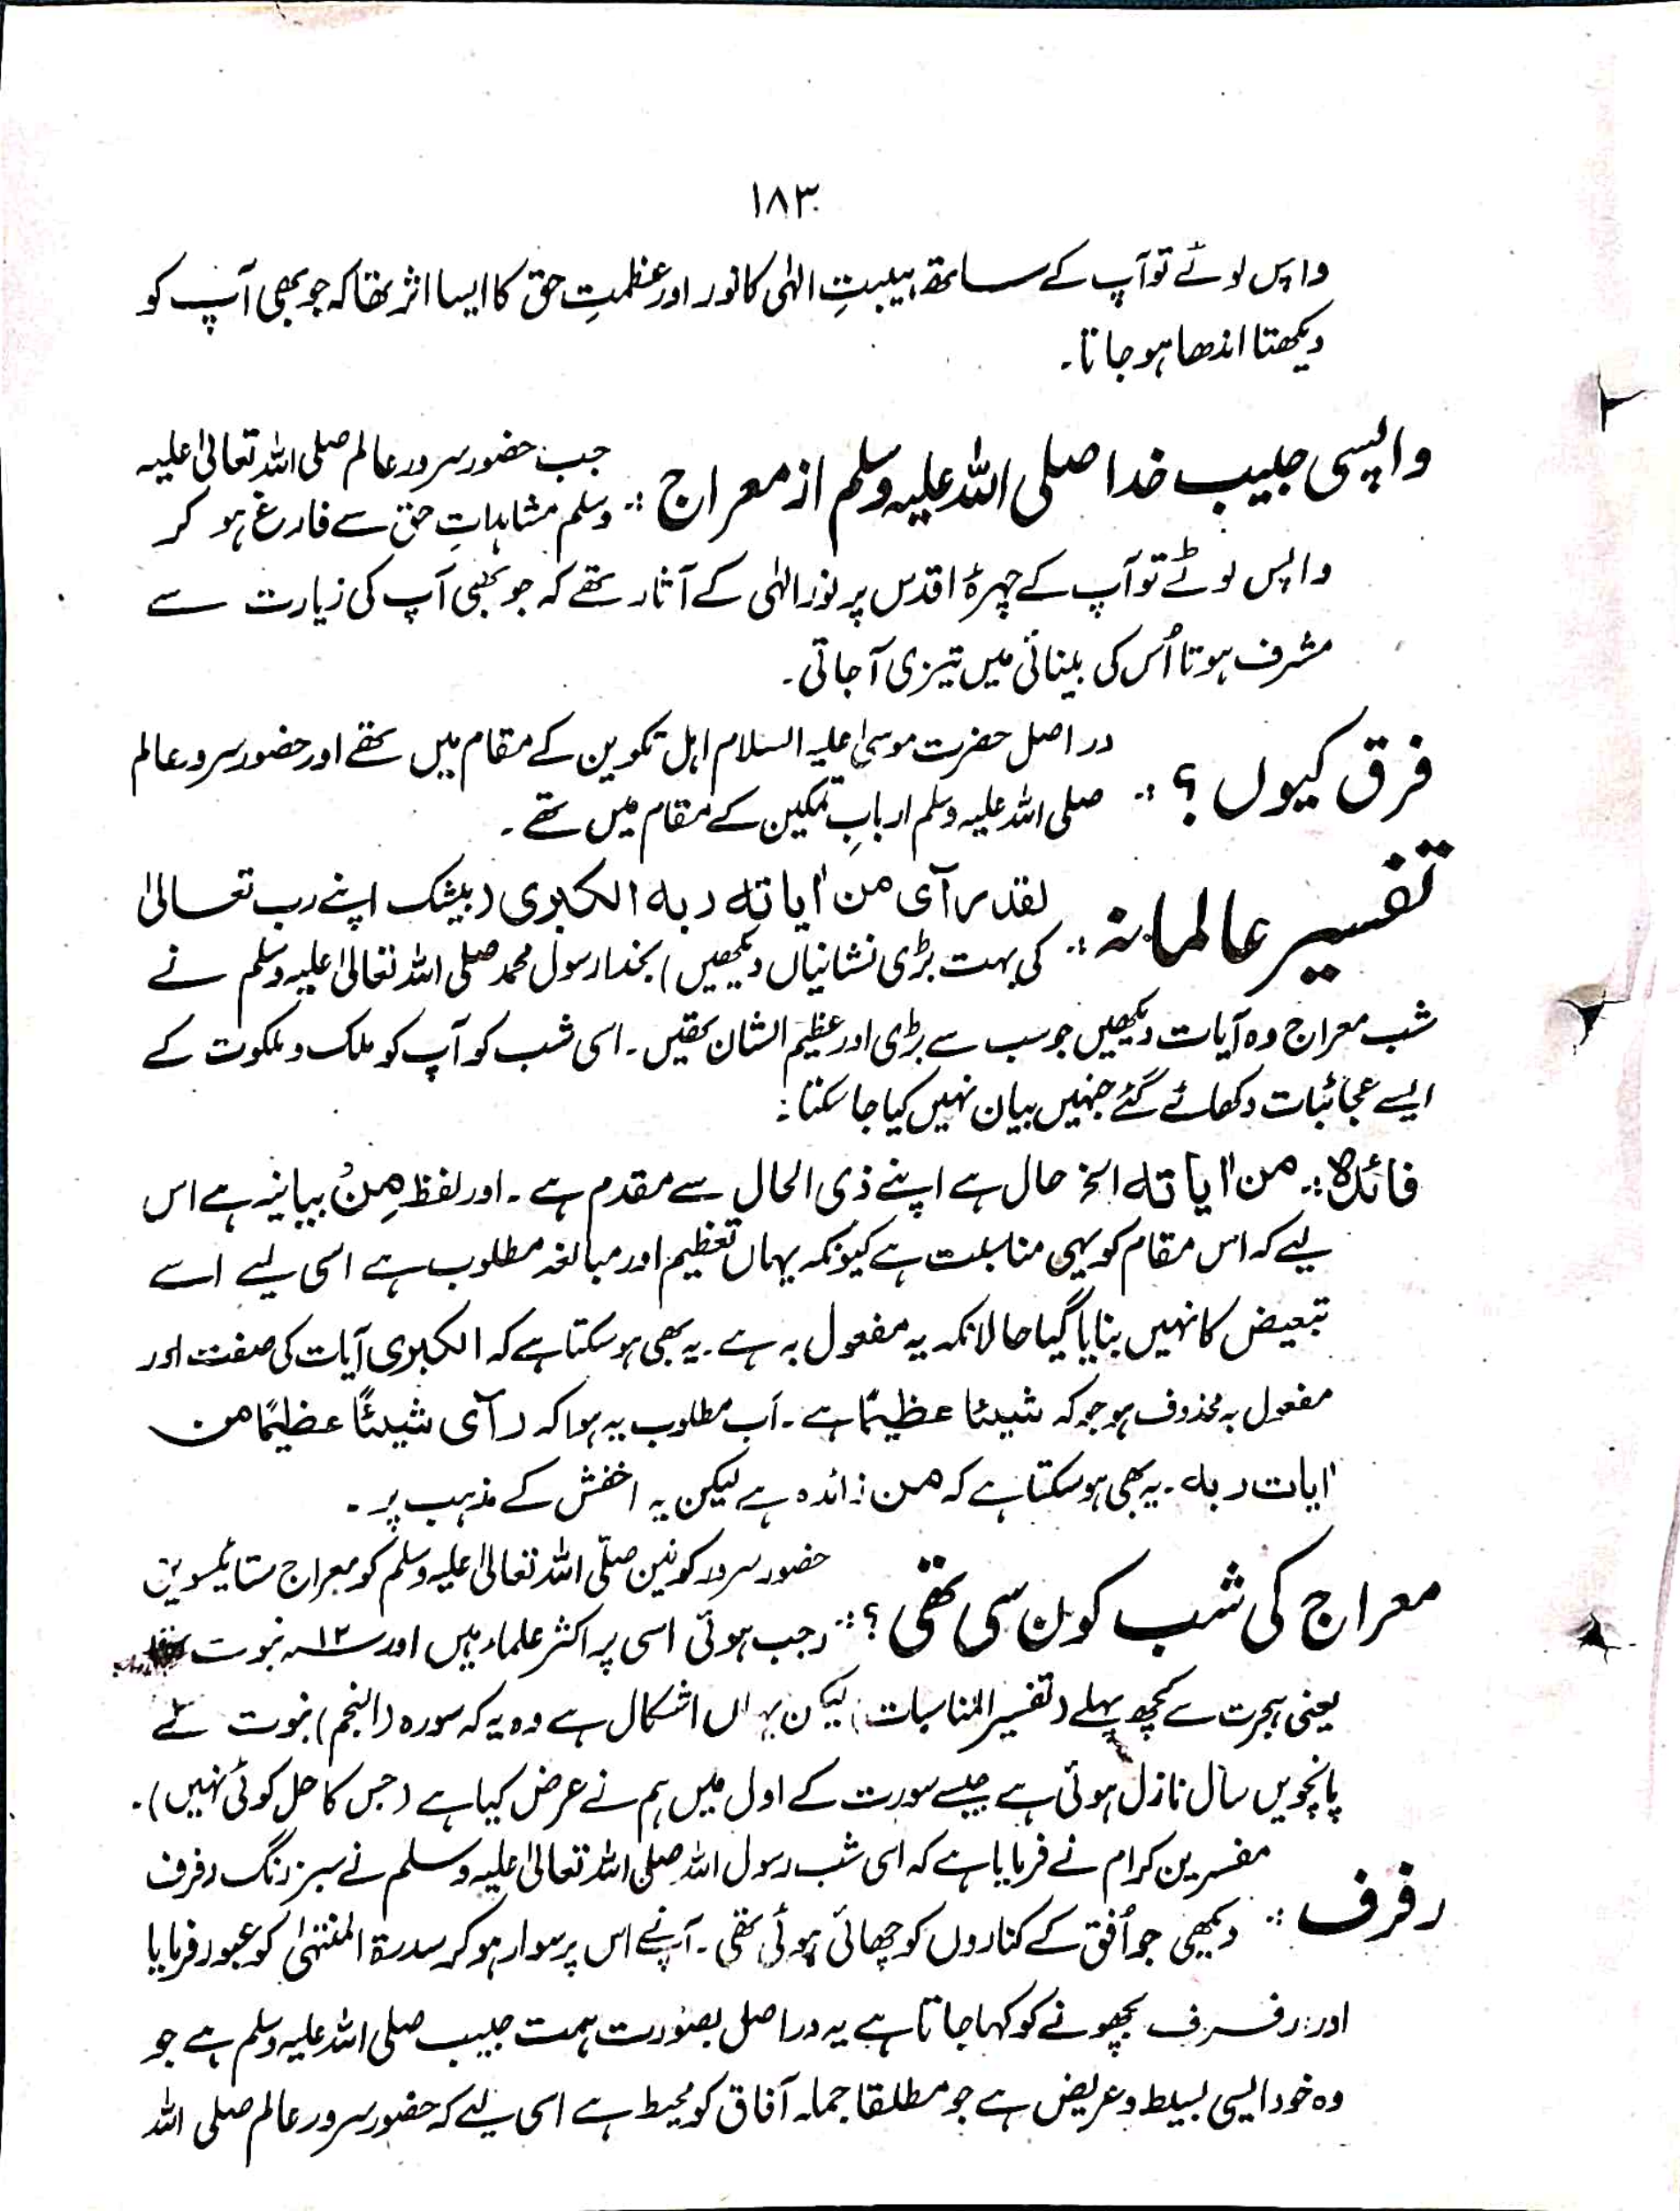 ۱۸۳
واپس لوٹے تو آپ کے ساتھ ہیبتِ الہٰی کا نور اور عظمتِ حق کا ایسا اثر تھا کہ جو بھی آپ کو
دیکھتا اندھا ہو جاتا۔
واپسی حبیب خدا صلی اللہ علیہ وسلم از معراج :۔ جب حضور سرور عالم صلی اللہ تعالیٰ علیہ
وسلم مشاہداتِ حق سے فارغ ہو کر
واپس لوٹے تو آپ کے چہرۂ اقدس پر نور الہٰی کے آثار تھے کہ جو بھی آپ کی زیارت سے
مشرف ہوتا اُس کی بینائی میں تیزی آجاتی۔
فرق کیوں ؟ :۔ در اصل حضرت موسیٰ علیہ السلام اہل تکوین کے مقام میں تھے اور حضور سرور عالم
صلی اللہ علیہ وسلم اربابِ تمکین کے مقام میں تھے ۔
تفسیر عالمانہ :۔ لقد رآی من اٰیاتہ ربہ الکبری (بیشک اپنے رب تعالیٰ
کی بہت بڑی نشانیاں دیکھیں) بخدا رسول محمد صلی اللہ تعالیٰ علیہ وسلم نے
شب معراج وہ آیات دیکھیں جو سب سے بڑی اور عظیم الشان تھیں ۔ اسی شب کو آپ کو ملک و ملکوت کے
ایسے عجائبات دکھائے گئے جنہیں بیان نہیں کیا جا سکتا :
فائدہ :۔ من اٰیاتہ الخ حال ہے اپنے ذی الحال سے مقدم ہے ۔ اور لفظ مِنْ بیانیہ ہے اس
لیے کہ اس مقام کو یہی مناسبت ہے کیونکہ یہاں تعظیم اور مبالغہ مطلوب ہے اسی لیے اسے
تبعیض کا نہیں بنایا گیا حالانکہ یہ مفعول بہ ہے ۔ یہ بھی ہو سکتا ہے کہ الکبری آیات کی صفت اور
مفعول بہ محذوف ہو جو کہ شیئا عظیمًا ہے ۔ اب مطلوب یہ ہوا کہ رآی شیئًا عظیمًا من
اٰیات ربہ ۔ یہ بھی ہو سکتا ہے کہ من زائدہ ہے لیکن یہ اخفش کے مذہب پر ۔
معراج کی شب کون سی تھی ؟ :۔ حضور سرور کونین صلّی اللہ تعالیٰ علیہ وسلم کو معراج ستائیسویں
رجب ہوئی اسی پر اکثر علماء ہیں اور ۱۲ سنہ نبوت
یعنی ہجرت سے کچھ پہلے (تفسیر المناسبات) لیکن یہاں اشکال ہے وہ یہ کہ سورہ (النجم) نبوت کے
پانچویں سال نازل ہوئی ہے جیسے سورت کے اول میں ہم نے عرض کیا ہے (جس کا حل کوئی نہیں) ۔
رفرف :۔ مفسرین کرام نے فرمایا ہے کہ اسی شب رسول اللہ صلی اللہ تعالیٰ علیہ وسلم نے سبز رنگ رفرف
دیکھی جو اُفق کے کناروں کو چھائی ہوئی تھی ۔ آپنے اس پر سوار ہو کر سدرۃ المنتہیٰ کو عبور فرمایا
اور رفرف بچھونے کو کہا جاتا ہے یہ دراصل بصورت ہمت حبیب صلی اللہ علیہ وسلم ہے جو
وہ خود ایسی بسیط و عریض ہے جو مطلقا جملہ آفاق کو محیط ہے اسی لیے کہ حضور سرور عالم صلی اللہ